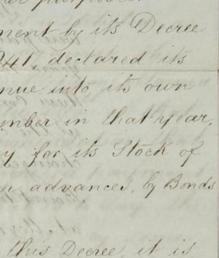 ment by its Decree
declared its
nue into its own
mber in that year,
y for its Stock of
advances, by Bonds
this Decree, it is